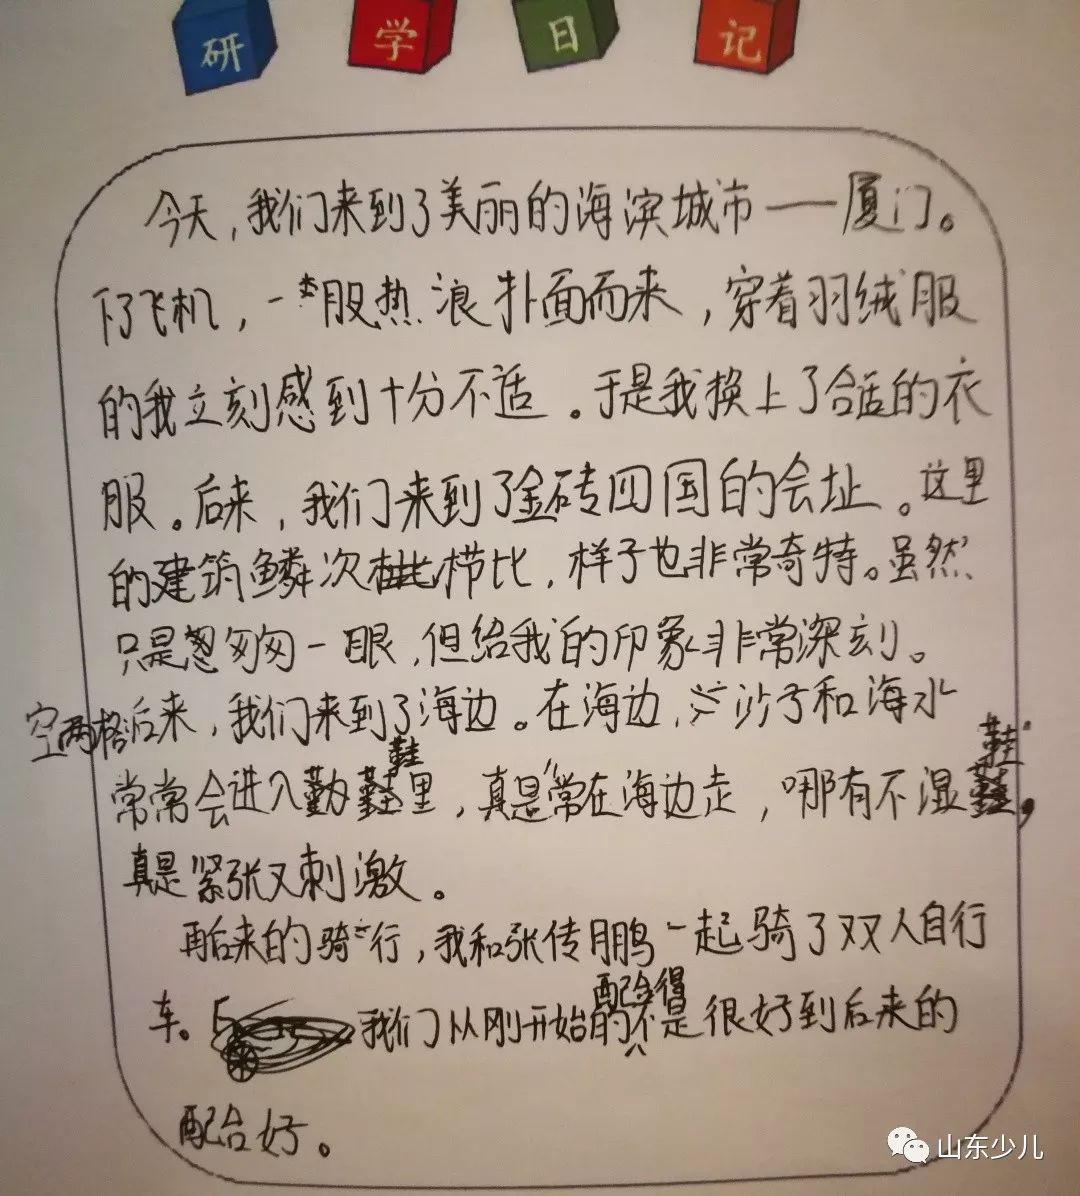 研学日记
今天,我们来到了美丽的海滨城市——厦门。
下了飞机,一股热浪扑面而来,穿着羽绒服
的我立刻感到十分不适。于是我换上了合适的衣
服。后来,我们来到了金砖四国的会址。这里
的建筑鳞次栉比,样子也非常奇特。虽然
只是匆匆一眼,但给我的印象非常深刻。
空两格后来,我们来到了海边。在海边,沙子和海水
鞋 鞋
常常会进入里,真是“常在海边走,哪有不湿,
真是紧张又刺激。
再后来的骑行,我和张传鹏一起骑了双人自行
配合得
车。我们从刚开始的不是很好到后来的
配合好。
山东少儿